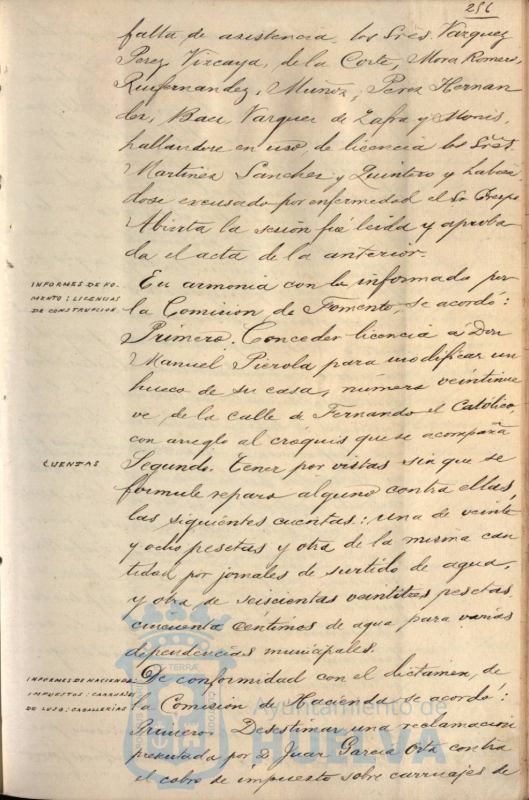 256
falta de asistencia los Sres. Vazquez
Perez, Vizcaya, de la Corte, Mora Romero,
Ruifernandez, Muñoz, Perez Hernan
dez, Baez, Vazquez de Zafra y Monis,
hallandose en uso de licencia los Sres.
Martinez Sanchez y Quintero y habién
dose excusado por enfermedad el Sr. Crespo
Abierta la sesión fué leida y aproba
da el acta de la anterior.
INFORMES DE FO-
MENTO: LICENCIAS
DE CONSTRUCIÓN
En armonia con lo informado por
la Comisión de Fomento, se acordó:
Primero. Conceder licencia á Don
Manuel Pierola para modificar un
hueco de su casa, número veintinue
ve de la calle de Fernando el Católico,
con arreglo al cróquis que se acompaña
CUENTAS
Segundo. Tener por vistas sin que se
formule reparo alguno contra ellas,
las siguientes cuentas: una de veinte
y ocho pesetas y otra de la misma can
tidad por jornales de surtido de agua,
y otra de seiscientas veintitres pesetas
cincuenta centimos de agua para varias
dependencias municipales.
INFORMES DE HACIENDA:
IMPUESTOS: CARRUAJES
DE LUJO: CABALLERÍAS
De conformidad con el dictamen de
la Comisión de Hacienda se acordó:
Primero. Desestimar una reclamación
presentada por D. Juan García Orta contra
el cobro de impuesto sobre carruajes de
Ayuntamiento de
HUELVA